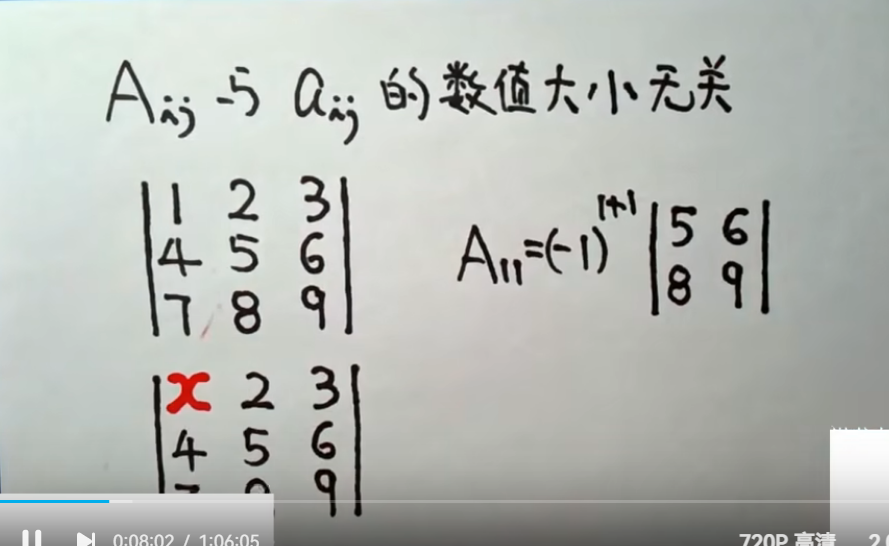 A_ij 与 a_ij 的数值大小无关
|1 2 3|
|4 5 6|
|7 8 9|
A_11=(-1)^{1+1} |5 6|
|8 9|
|x 2 3|
|4 5 6|
9|
0:08:02 / 1:06:05
720P 高清